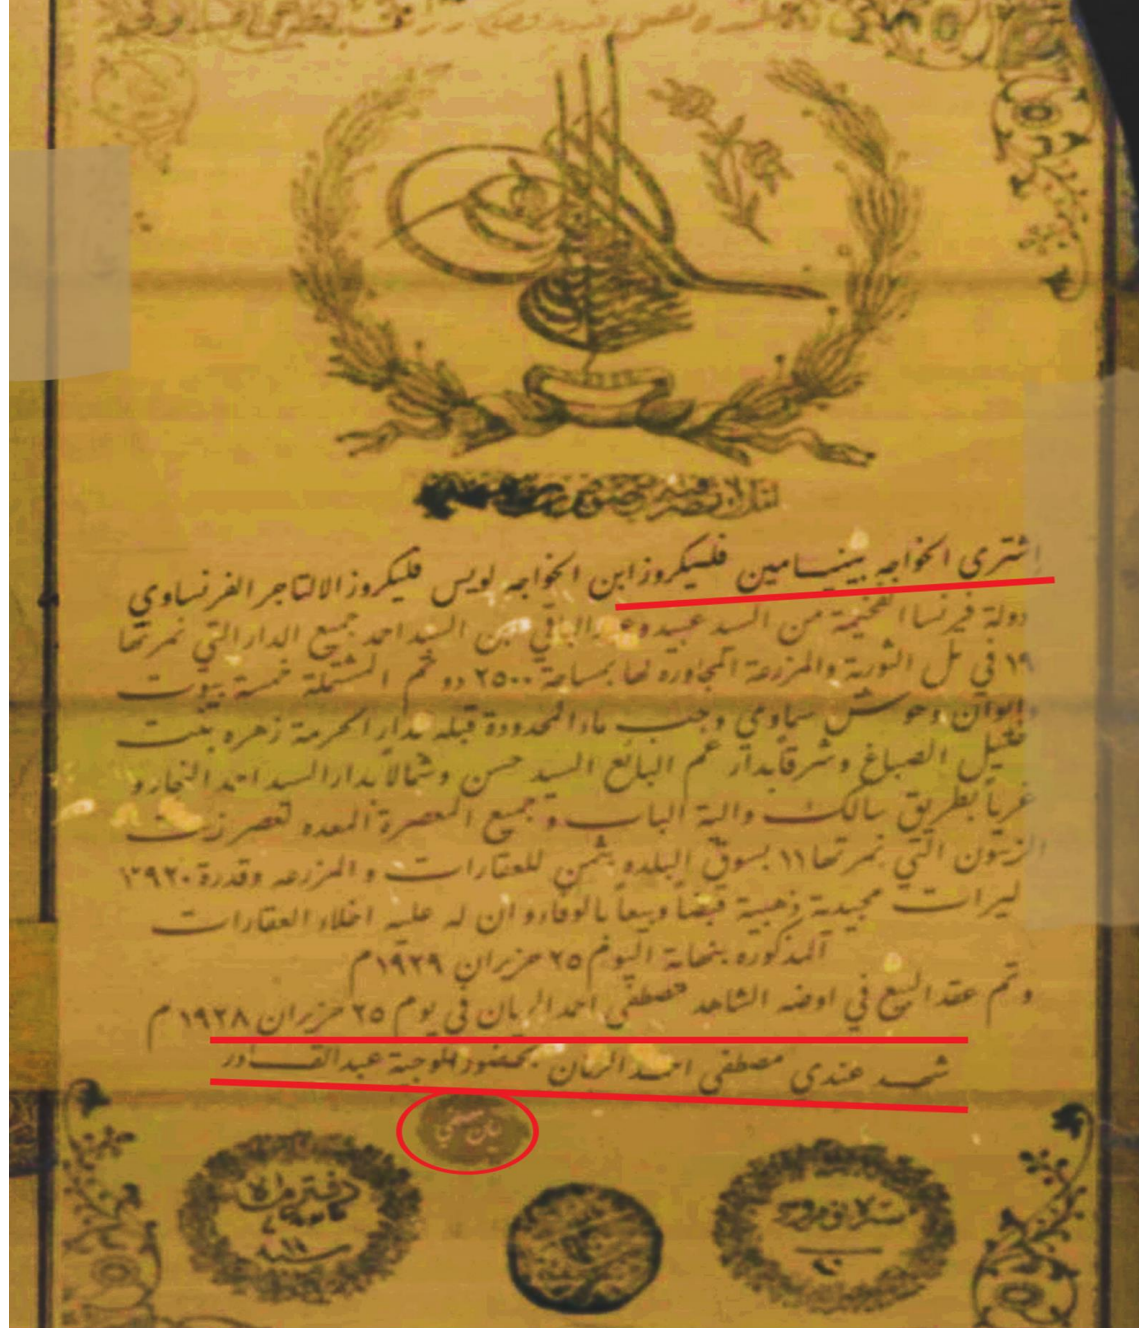 اشترى الخواجه بينيامين فلسيكروز ابن الخواجه لويس فليكروز الالتاجر الفرنساوي
دولة فيرنسا الفخيمة من السيد عبيد وعبد الباقي ابن السيد احمد جميع الدار التي نمرتها
١٩ في تل الثورية والمزرعة المجاوره لها بمساحة ٢٥٠٠ دونم المشتملة خمسة بيوت
وايوان وحوش سماوي وجب ماء المحدودة قبله بدار الحرمة زهره بنت
خليل الصباغ وشرقاً بدار عم البائع السيد حسن وشمالاً بدار السيد احمد النجار و
غرباً بطريق سالك والية الباب و جميع المعصرة المعده لعصر زيت
الزيتون التي نمرتها ١١ بسوق البلده بثمن للعقارات و المزرعه وقدرة ١٢٩٢٠
ليرات مجيدية ذهبية قبضاً وبيعاً بالوفاء وان له عليه اخلاء العقارات
المذكوره بنهاية اليوم ٢٥ حزيران ١٩٢٩م
وتم عقد البيع في اوضه الشاهد مصطفى احمد الريان في يوم ٢٥ حزيران ١٩٢٨ م
شهد عندي مصطفى احمد الريان بحضور الوجية عبد القادر
ريان مصطفى